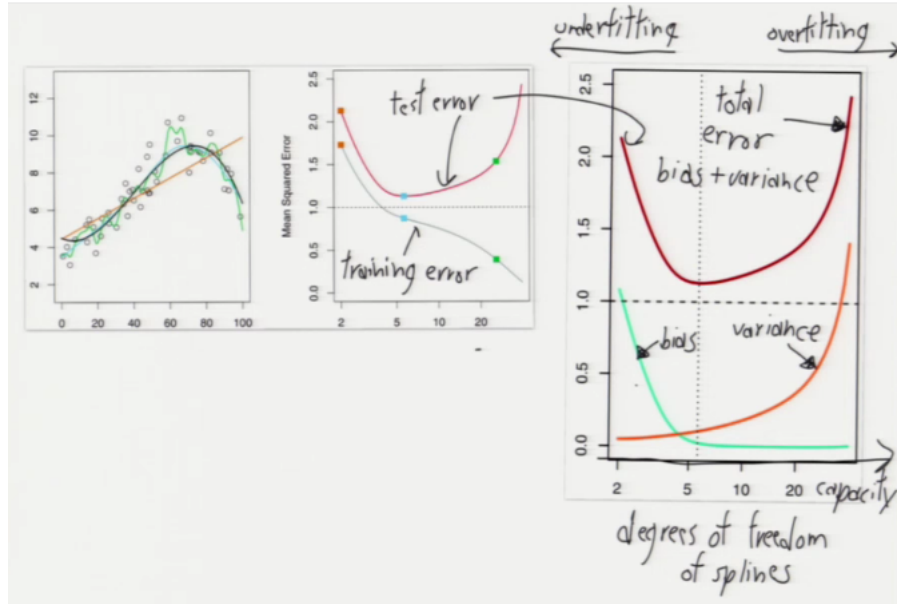 underfitting
overfitting
12
10
8
6
4
2
0 20 40 60 80 100
Mean Squared Error
2.5
2.0
1.5
1.0
0.5
0.0
2 5 10 20
test error
training error
2.5
2.0
1.5
1.0
0.5
0.0
total
error
bias+variance
bias
variance
2 5 10 20
capacity
degrees of freedom
of splines